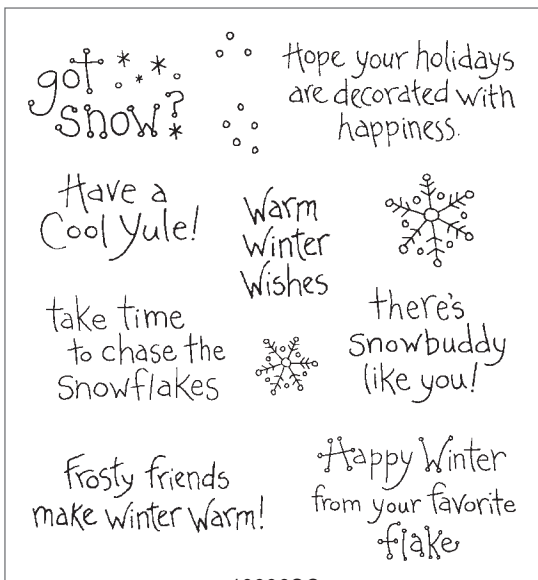 got
snow?
Hope your holidays
are decorated with
happiness.
Have a
Cool Yule!
Warm
Winter
Wishes
take time
to chase the
Snowflakes
there's
Snowbuddy
like you!
Frosty friends
make winter warm!
Happy Winter
from your favorite
flake